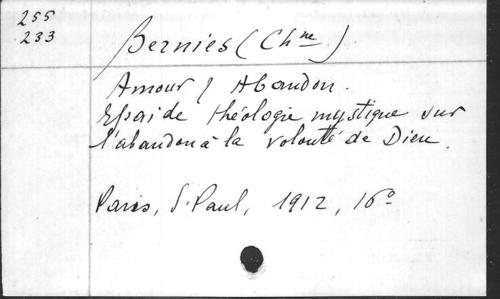 255
233
Bernies (Chne.)
Amour & Abandon.
Essai de théologie mystique sur
l'abandon à la volonté de Dieu.
Paris, S. Paul, 1912, 16°